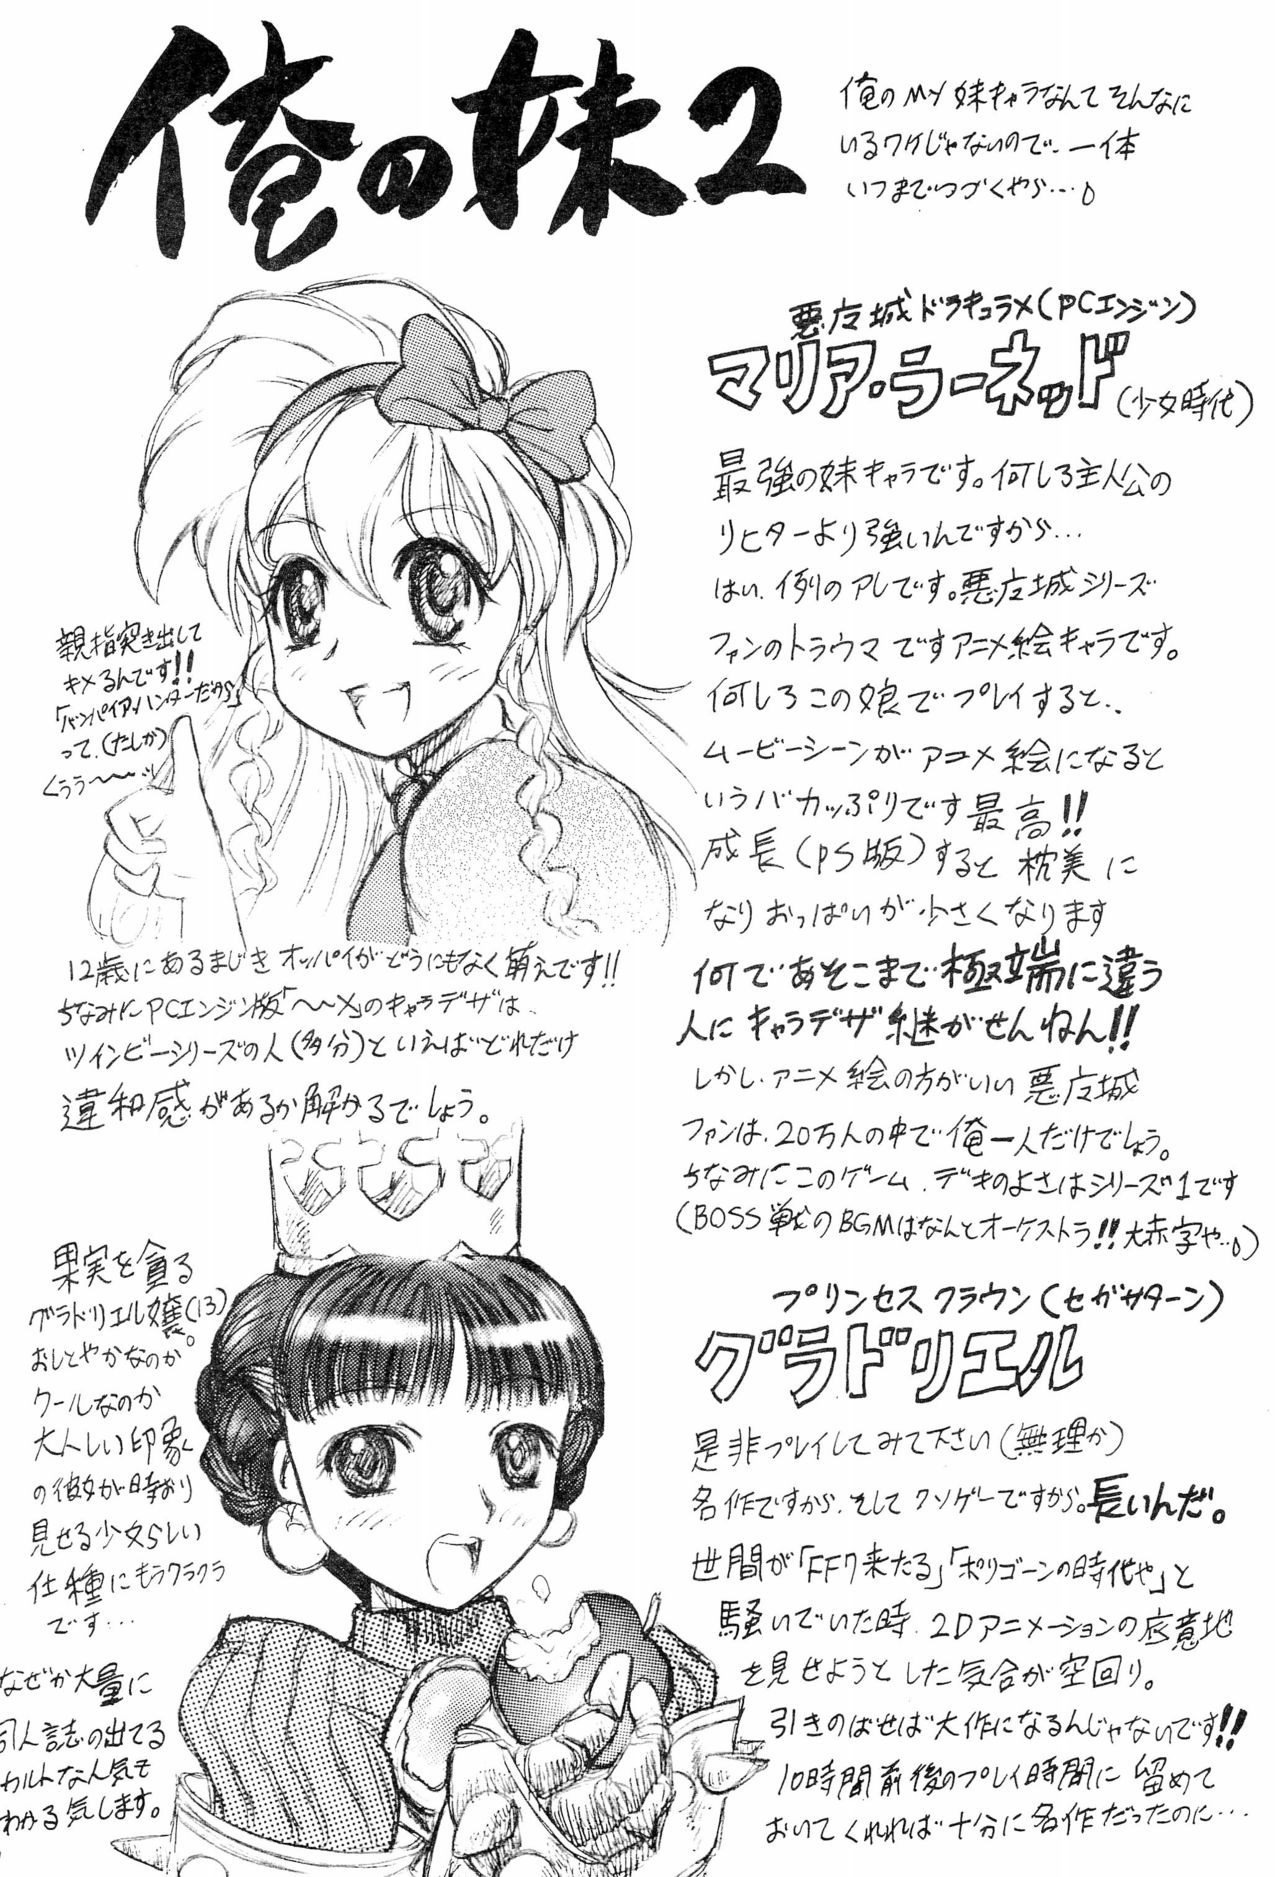 俺の妹2
俺のMY妹キャラなんてそんなに
いるワケじゃないので、一体
いつまでつづくやら…。
悪广城ドラキュラX(PCエンジン)
マリア・ラーネッド(少女時代)
最強の妹キャラです。何しろ主人公の
リヒターより強いんですから…
はい、例のアレです。悪广城シリーズ
ファンのトラウマですアニメ絵キャラです。
何しろこの娘でプレイすると、、
ムービーシーンがアニメ絵になると
いうバカっぷりです最高!!
成長(PS版)すると枕美に
なりおっぱいが小さくなります
何であそこまで極端に違う
人にキャラデザ継がせんねん!!
しかし、アニメ絵の方がいい悪广城
ファンは、20万人の中で俺一人だけでしょう。
ちなみにこのゲーム、デキのよさはシリーズ1です
(BOSS戦のBGMはなんとオーケストラ!!大赤字や…)
親指突き出して
キメるんです!!
「バンパイア・ハンターだから」
って、(たしか)
くぅぅ〜〜
12歳にあるまじきオッパイがどうにもなく萌えです!!
ちなみにPCエンジン版「〜〜X」のキャラデザは、
ツインビーシリーズの人(多分)といえばどれだけ
違和感があるか解かるでしょう。
プリンセスクラウン(セガサターン)
グラドリエル
是非プレイしてみて下さい(無理か)
名作ですから、そしてクソゲーですから。長いんだ。
世間が「FF7来たる」「ポリゴーンの時代や」と
騒いでいた時、2Dアニメーションの底意地
を見せようとした気合が空回り。
引きのばせば大作になるんじゃないです!!
10時間前後のプレイ時間に留めて
おいてくれれば十分に名作だったのに…
果実を貪る
グラドリエル嬢(13)。
おしとやかなのか
クールなのか
大人しい印象
の彼女が時おり
見せる少女らしい
仕種にもうクラクラ
です…
なぜか大量に
同人誌の出てる
カルトな人気も
わかる気します。